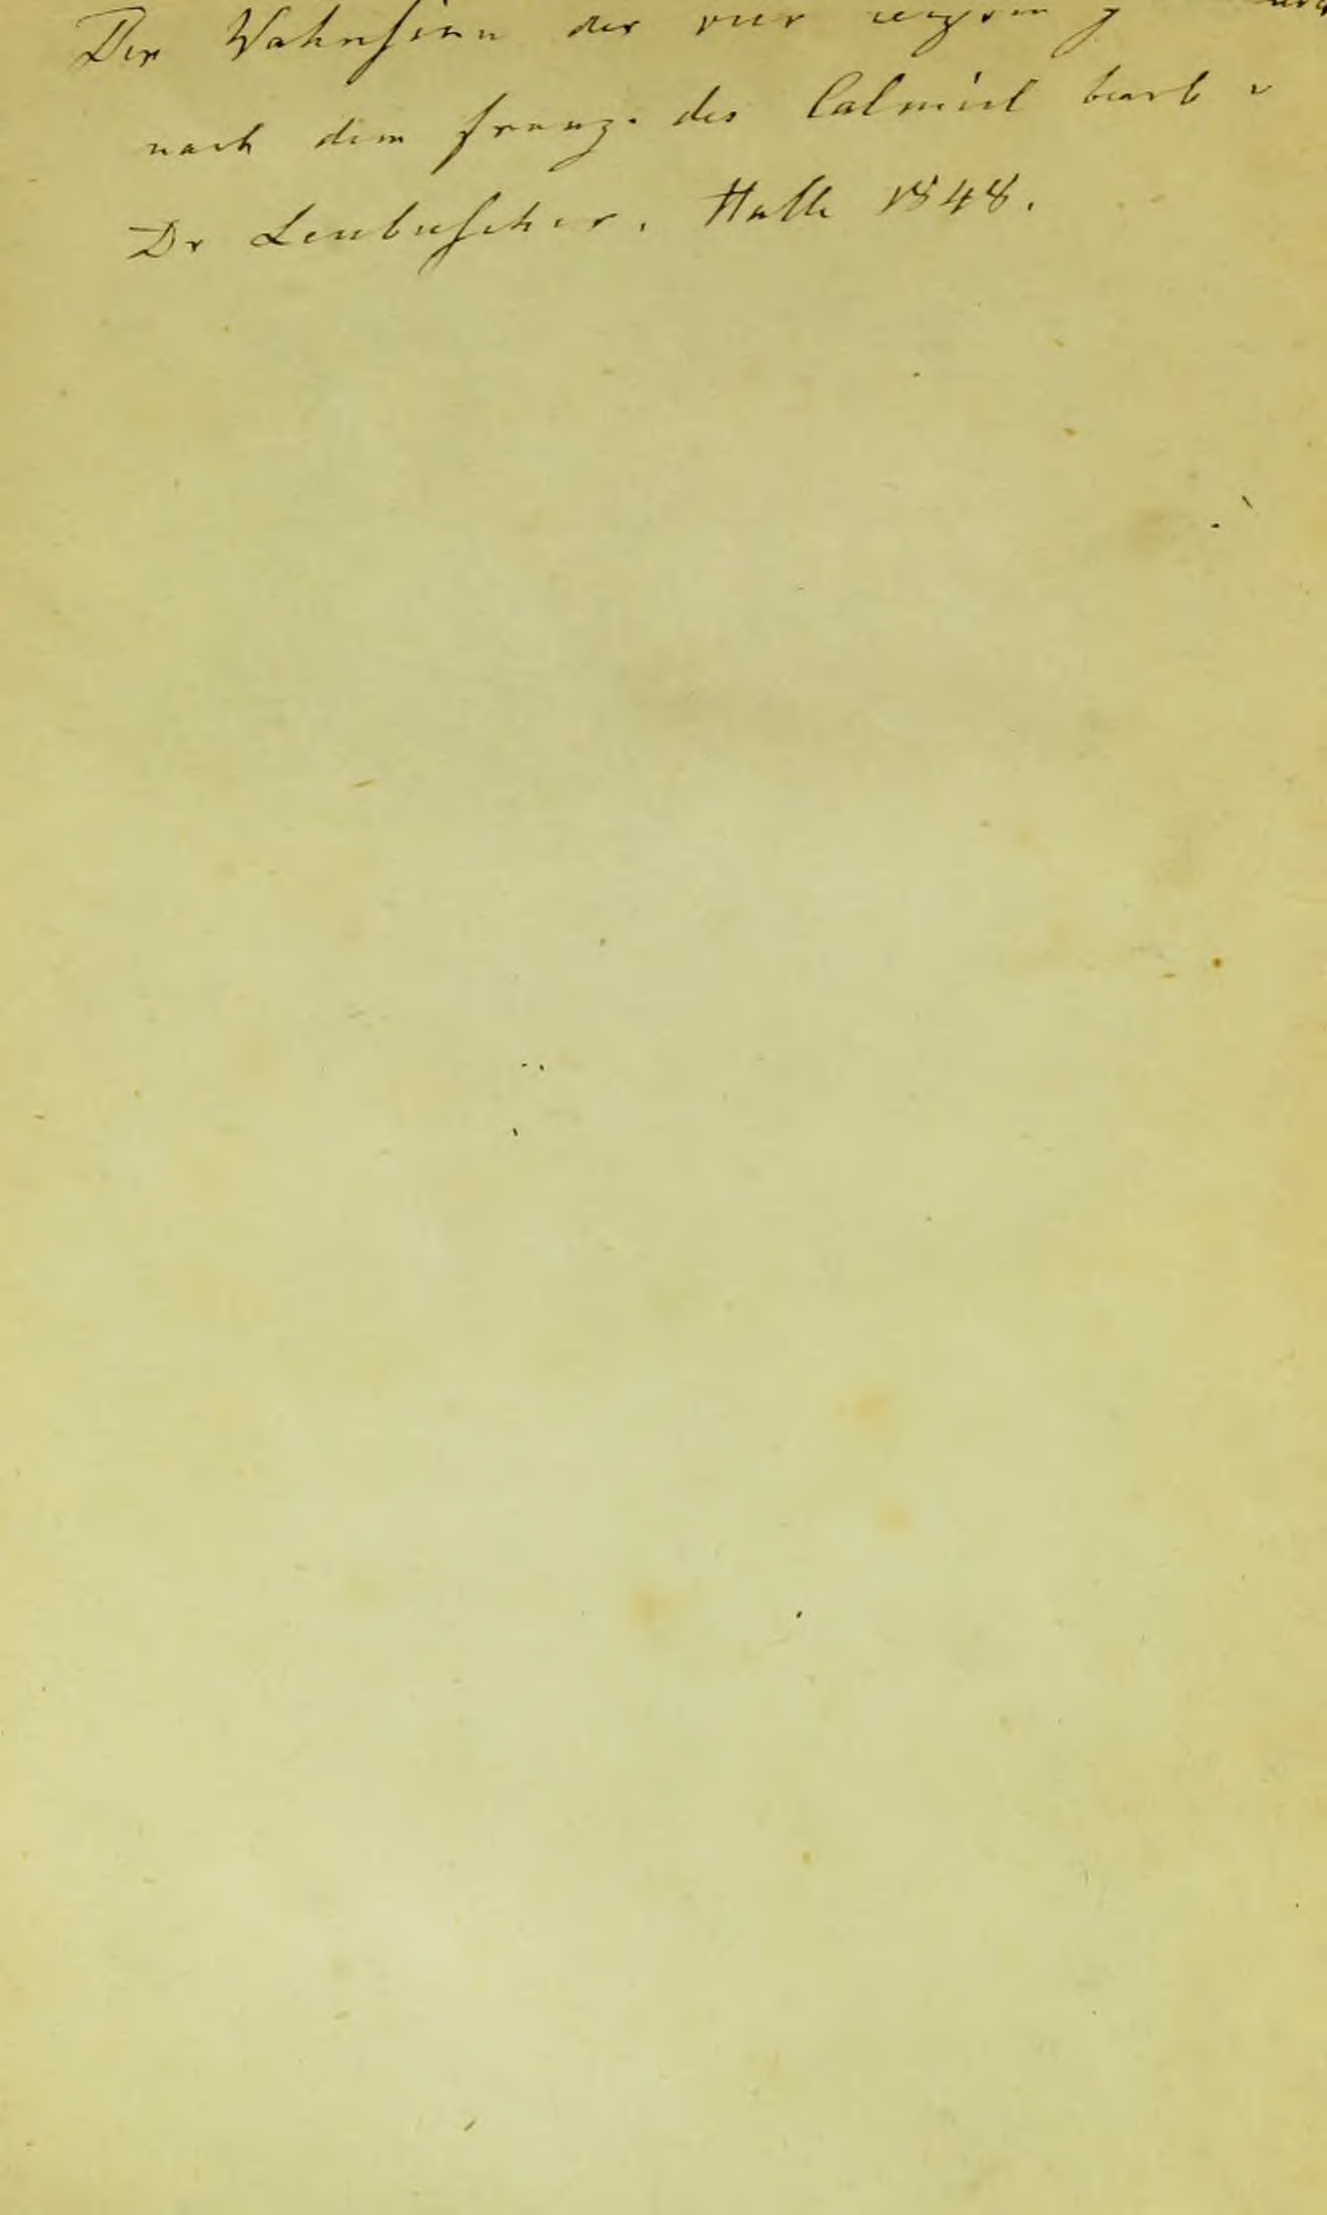 Der Wahnsinn der vier
nach dem franz. des Calmeil bearb v
Dr Leubuscher. Halle 1848.